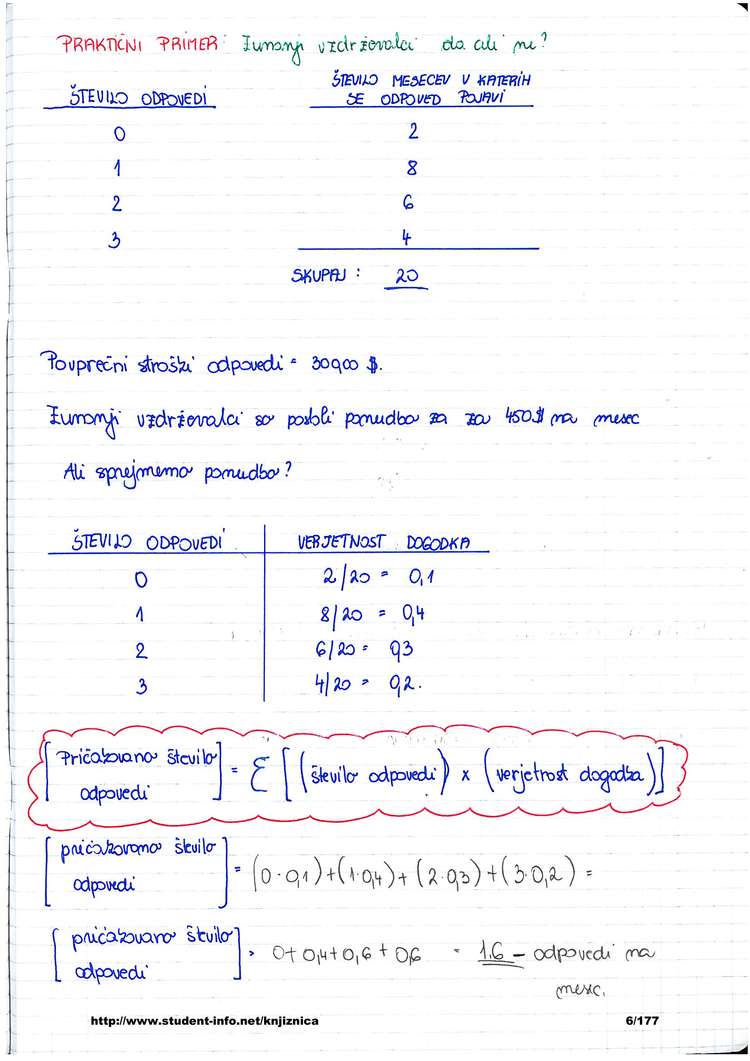 PRAKTIČNI PRIMER: Zunanji vzdrževalci da ali ne?
ŠTEVILO ODPOVEDI
ŠTEVILO MESECEV V KATERIH
SE ODPOVED POJAVI
0 2
1 8
2 6
3 4
SKUPAJ: 20
Povprečni stroški odpovedi = 30000 $.
Zunanji vzdrževalci so poslali ponudbo za za 450$ na mesec
Ali sprejmemo ponudbo?
ŠTEVILO ODPOVEDI VERJETNOST DOGODKA
0 2/20 = 0,1
1 8/20 = 0,4
2 6/20 = 0,3
3 4/20 = 0,2.
[Pričakovano število odpovedi] = Σ [(število odpovedi) x (verjetnost dogodka)]
[pričakovano število odpovedi] = (0·0,1)+(1·0,4)+(2·0,3)+(3·0,2) =
[pričakovano število odpovedi] = 0+0,4+0,6+0,6 = 1.6 - odpovedi na
mesec.
http://www.student-info.net/knjiznica 6/177